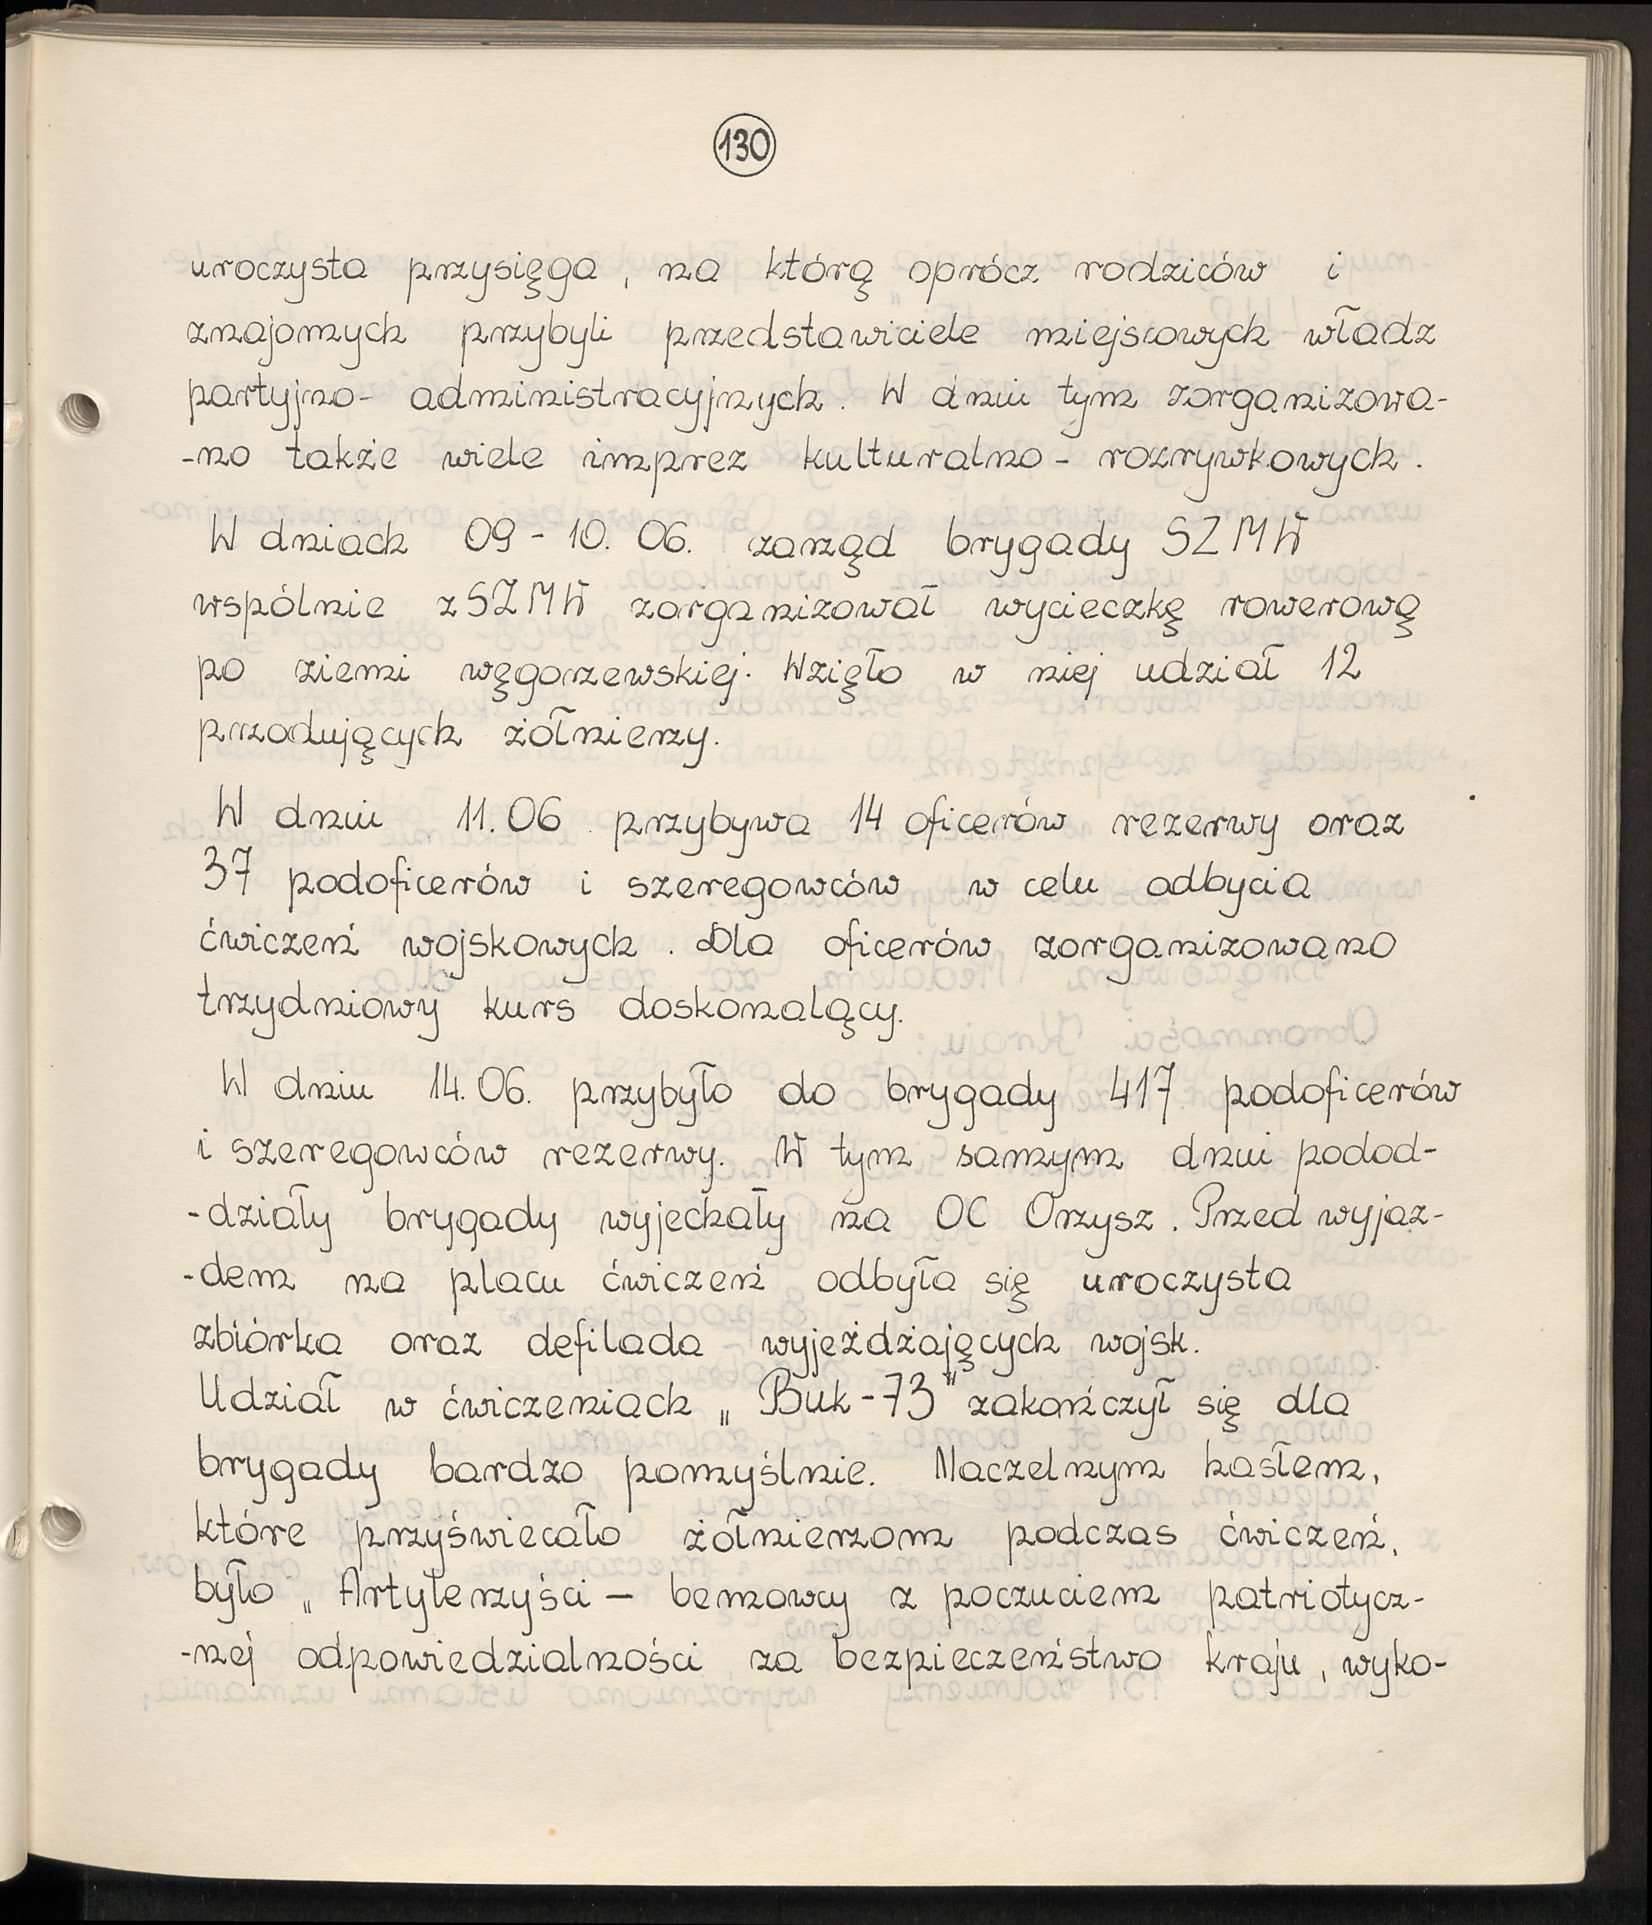 130
uroczysta przysięga, na którą oprócz rodziców i
znajomych przybyli przedstawiciele miejscowych władz
partyjno- administracyjnych. W dniu tym zorganizowa-
-no także wiele imprez kulturalno - rozrywkowych.
W dniach 09 - 10. 06. zarząd brygady SZMW
wspólnie z SZMW zorganizował wycieczkę rowerową
po ziemi węgorzewskiej. Wzięło w niej udział 12
przodujących żółnierzy.
W dniu 11. 06 przybywa 14 oficerów rezerwy oraz
37 podoficerów i szeregowców w celu odbycia
ćwiczeń wojskowych. Dla oficerów zorganizowano
trzydniowy kurs doskonalący.
W dniu 14. 06. przybyło do brygady 417 podoficerów
i szeregowców rezerwy. W tym samym dniu podod-
-działy brygady wyjechały na OC Orzysz. Przed wyjaz-
-dem na placu ćwiczeń odbyła się uroczysta
zbiórka oraz defilada wyjeżdżających wojsk.
Udział w ćwiczeniach „Buk - 73" zakończył się dla
brygady bardzo pomyślnie. Naczelnym hasłem,
które przyświecało żółnierzom podczas ćwiczeń,
było „Artylerzyści — bemowcy z poczuciem patriotycz-
-nej odpowiedzialności za bezpieczeństwo kraju, wyko-